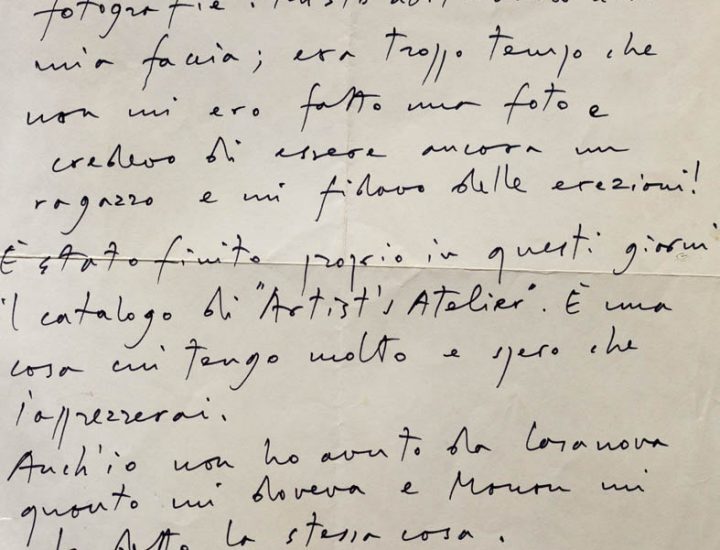 fotografie.
mia faccia; era troppo tempo che
non mi ero fatto una foto e
credevo di essere ancora un
ragazzo e mi fidavo delle erezioni!
È stato finito proprio in questi giorni
il catalogo di "Artist's Atelier". È una
cosa cui tengo molto e spero che
l'apprezzerai.
Anch'io non ho avuto da Casanova
quanto mi doveva e Manon mi
ha detto la stessa cosa.